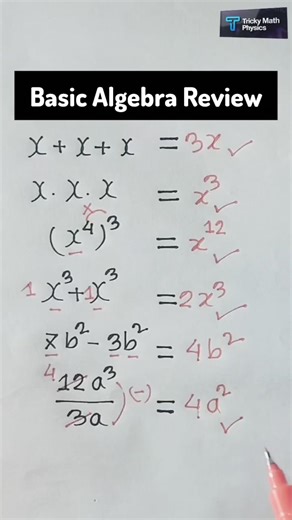 Tricky Math
Physics
Basic Algebra Review
x + x + x = 3x ✓
x . x . x = x³ ✓
(x⁴)³ = x¹² ✓
1x³ + 1x³ = 2x³ ✓
7b² − 3b² = 4b²
4 12a³ / 3a (−) = 4a² ✓